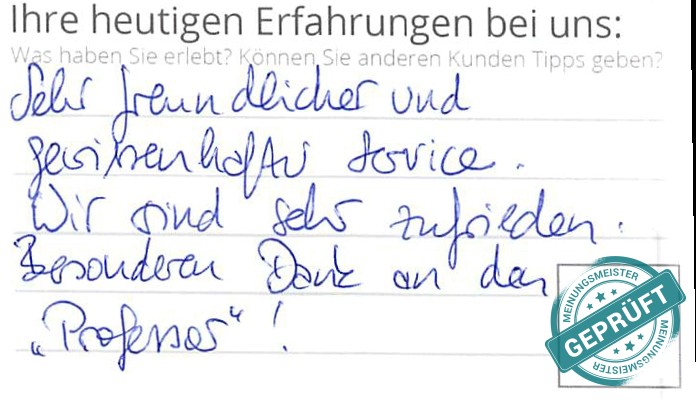 Ihre heutigen Erfahrungen bei uns:
Was haben Sie erlebt? Können Sie anderen Kunden Tipps geben?
Sehr freundlicher und
gewissenhafter Service.
Wir sind sehr zufrieden.
Besonderen Dank an den
„Professor“!
MEINUNGSMEISTER
GEPRÜFT
MEINUNGSMEISTER